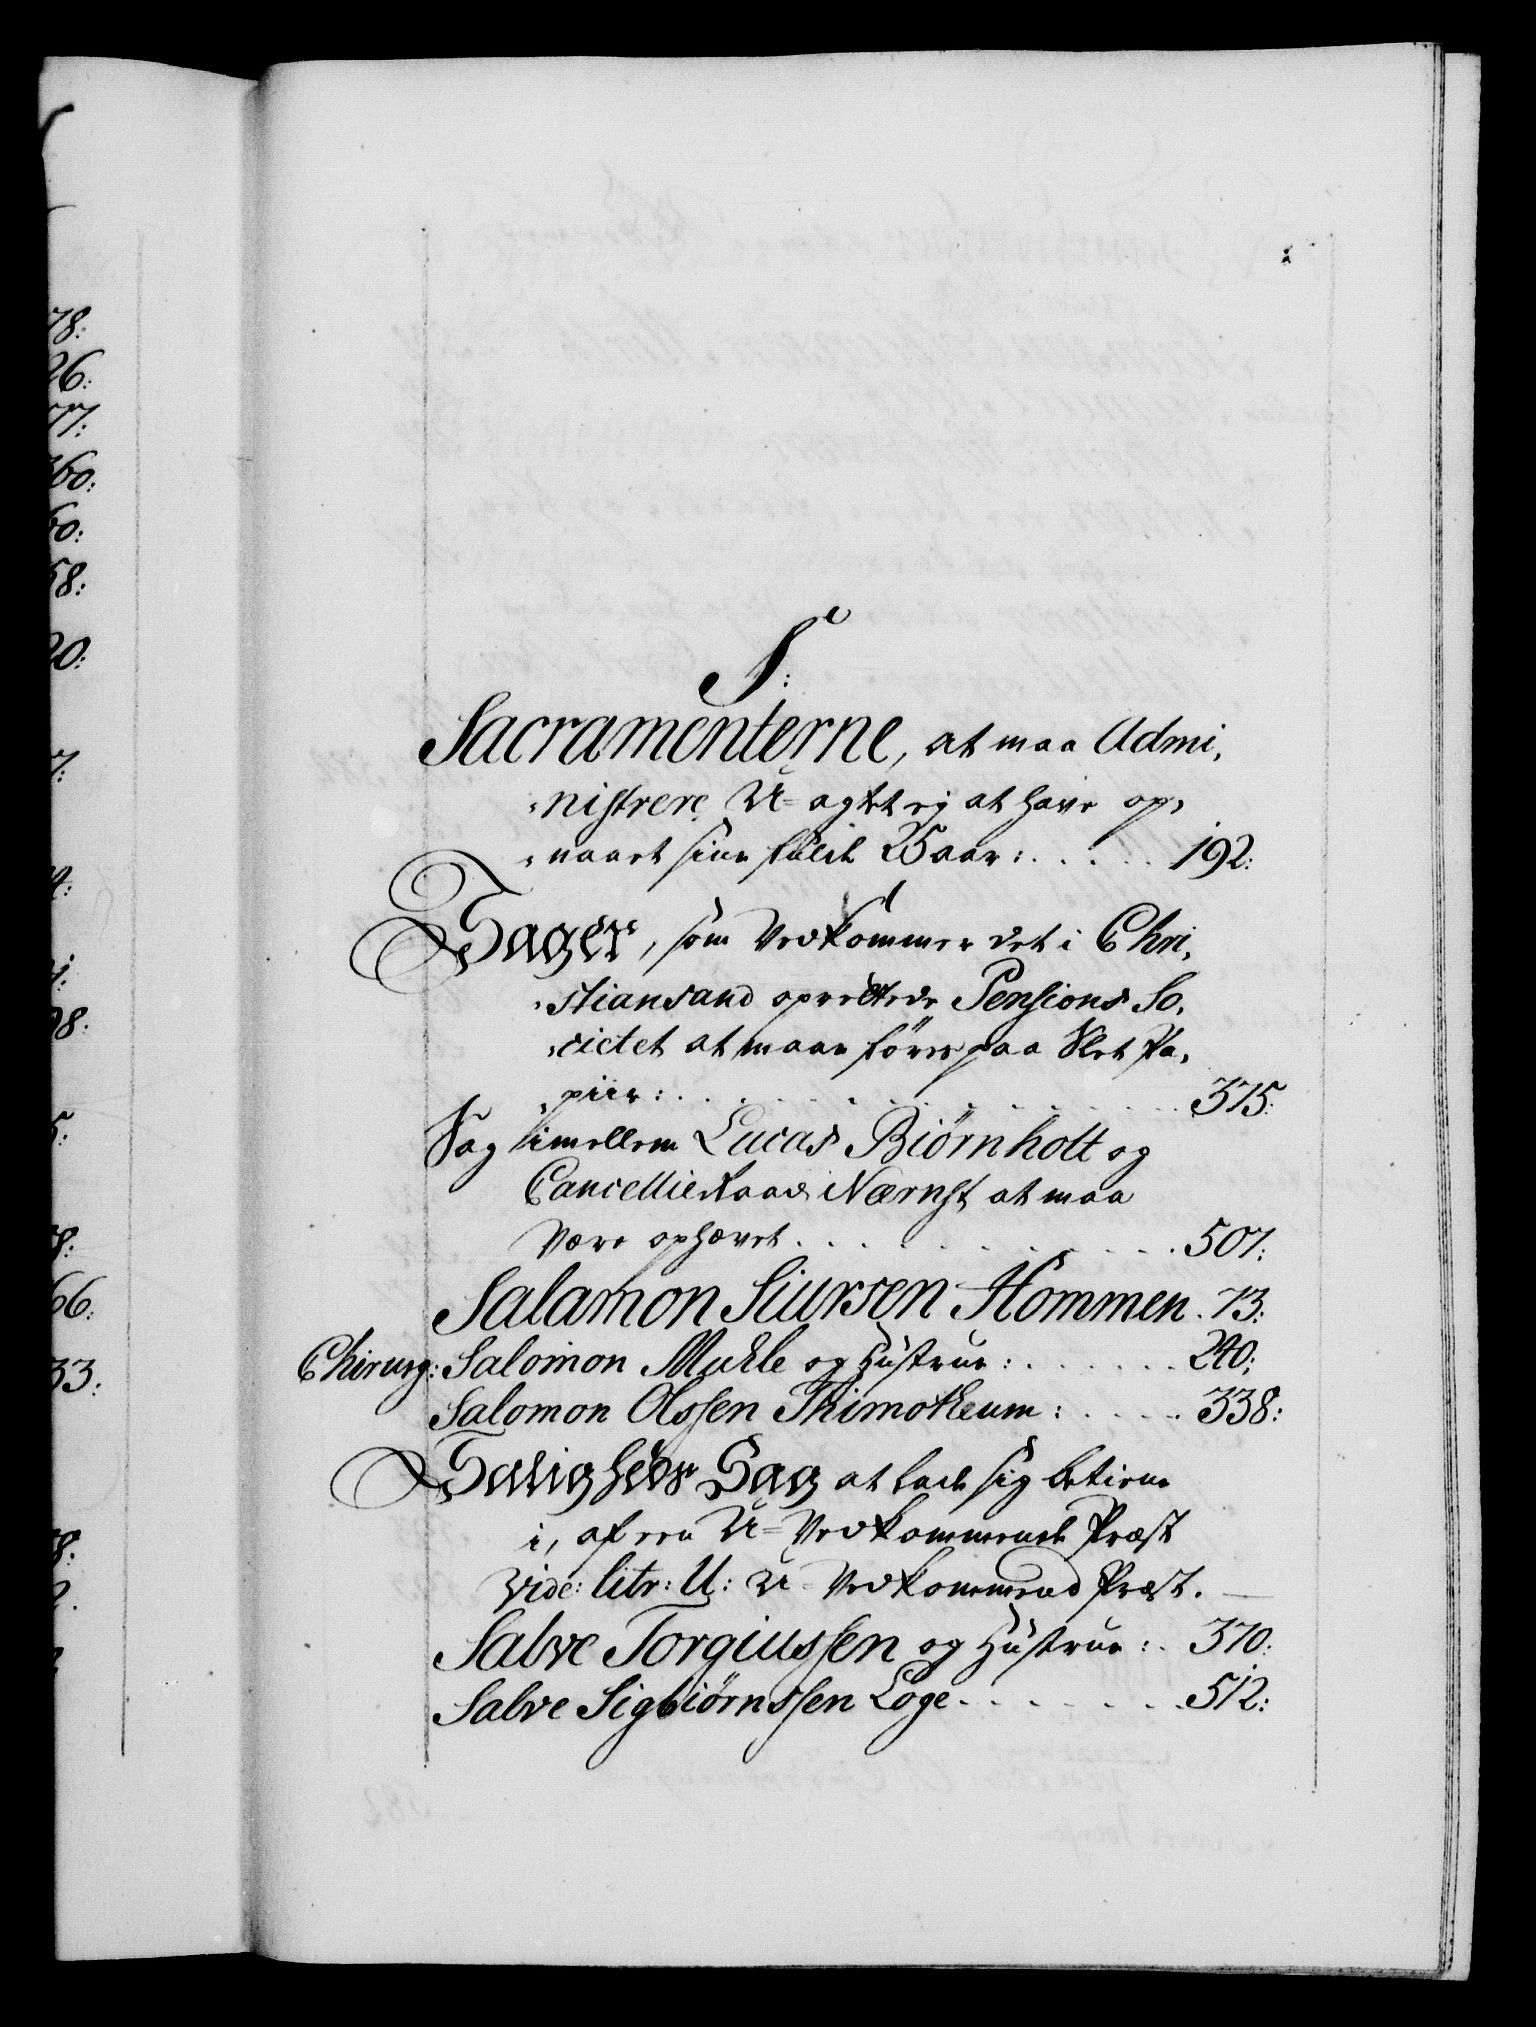 S:
Sacramenterne, at maa Admi,
,nistrere U=agtet ej at have op,
,naaet sine fulde 25 aar: . . . . . 192:
Sager, som Vedkommer det i Chri,
,stiansand oprettede Pensions So,
,cietet at maae föres paa Slet Pa,
,piir: . . . . . . . . . . . . 375:
Sag imellem Lucas Biörnholt og
Cancellie Raad Nærnst at maa
være ophævet . . . . . . . . . 507:
Salamon Siursen Hommen . 73:
Chirurg: Salomon Muhle og Hustrue: . . . . . . 240:
Salomon Olssen Thimotheum: . . . . 338:
Saligheds Sag at lade sig betiene
i, af een U=Vedkommende Præst
vide: litr: U: U=Vedkommend Præst. —
Salve Torgiussen og Hustrue: . 370:
Salve Sigbiörnssen Loge . . . . . . . 512:
78:
26:
77:
60:
60:
58:
20:
7:
98:
5:
8:
66:
33:
8: